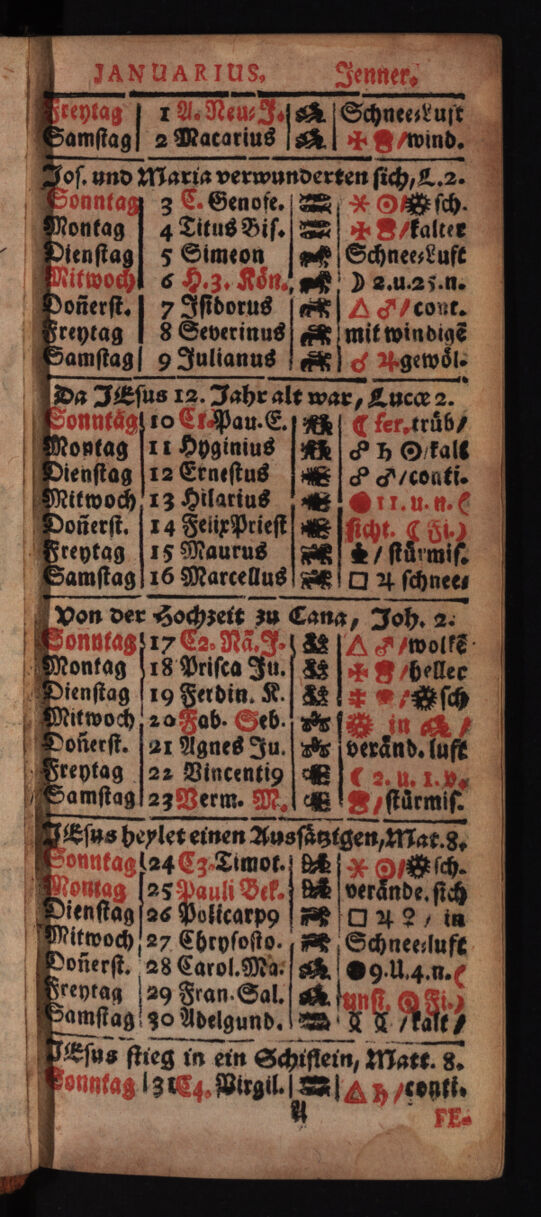 JANUARIUS. Jenner.
Freytag 1 A. Neu-J. Schnee-Luft
Samſtag 2 Macarius wind.
Joſ. und Maria verwunderten ſich, L. 2.
Sonntag 3 C. Genofe. ſch.
Montag 4 Titus Biſ. /kalter
Dienſtag 5 Simeon Schnee-Luft
Mitwoch 6 H. 3. Kön. ☽ 2. u. 25. n.
Doñerſt. 7 Iſidorus △ ♂ / cont.
Freytag 8 Severinus mit windigẽ
Samſtag 9 Julianus ☌ ♃ gewöl.
Da JEſus 12. Jahr alt war, Lucæ 2.
Sonntag 10 C1. Pau. E. ☾ fer. trüb/
Montag 11 Hyginius ☍ ♄ ☉ /kalt
Dienſtag 12 Erneſtus ☍ ♂ /conti.
Mitwoch 13 Hilarius ● 11. u. n. (
Doñerſt. 14 Felix Prieſt ſicht. ☾ Fi.)
Freytag 15 Maurus / ſtürmiſ.
Samſtag 16 Marcellus □ ♃ ſchnee-
Von der Hochzeit zu Cana, Joh. 2.
Sonntag 17 C2. Nã. J. △ ♂ /wolkẽ
Montag 18 Priſca Ju. /heller
Dienſtag 19 Ferdin. K. ſch
Mitwoch 20 Fab. Seb. in
Doñerſt. 21 Agnes Ju. veränd. luft
Freytag 22 Vincenti9 ☾ 2. u. 1. v.
Samſtag 23 Verm. M. / ſtürmiſ.
JEſus heylet einen Auſſätzigen, Mat. 8.
Sonntag 24 C3. Timot. ſch.
Montag 25 Pauli Bek. verände. ſich
Dienſtag 26 Policarp9 □ ♃ ♀ / in
Mitwoch 27 Chryſoſto. Schnee-luft
Doñerſt. 28 Carol. Ma. ● 9. U. 4. n. (
Freytag 29 Fran. Sal. unſ. ☉ Fi.)
Samſtag 30 Adelgund. /kalt/
JEſus ſtieg in ein Schifflein, Matt. 8.
Sonntag 31 C4. Virgil. △ ♄ /conti.
A FE-